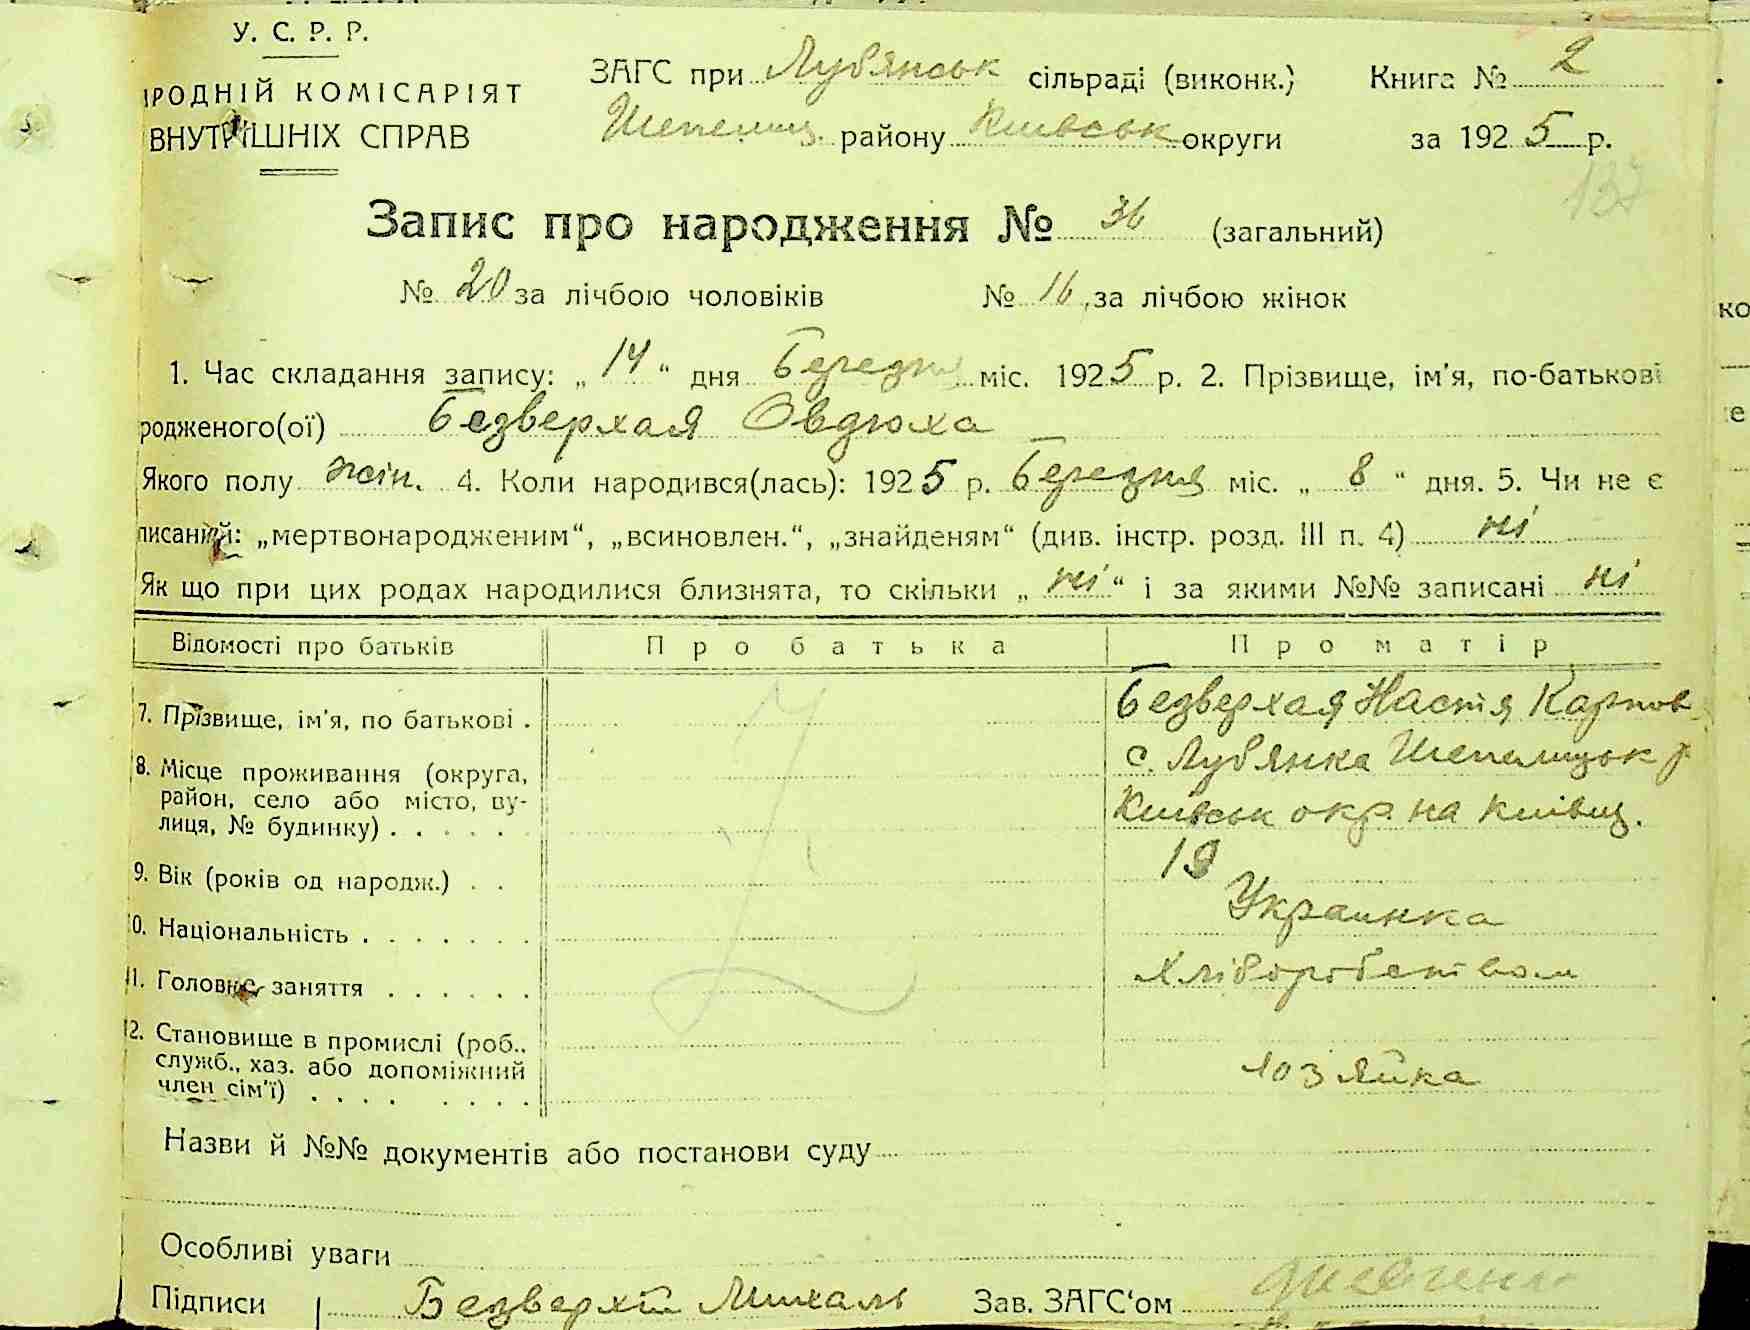 У. С. Р. Р.
ІРОДНІЙ КОМІСАРІЯТ
ВНУТРІШНІХ СПРАВ
ЗАГС при Лубянськ сільраді (виконк.) Книга № 2
Шепелиц. району Київськ округи за 1925 р.
137
Запис про народження № 36 (загальний)
№ 20 за лічбою чоловіків № 16 за лічбою жінок
1. Час складання запису: „ 14 “ дня Березня міс. 1925 р. 2. Прізвище, ім'я, по-батькові
родженого(ої) Безверхая Овдюха
Якого полу жін. 4. Коли народився(лась): 1925 р. Березня міс. „ 8 “ дня. 5. Чи не є
писаний: „мертвонародженим“, „всиновлен.“, „знайденям“ (див. інстр. розд. III п. 4) ні
Як що при цих родах народилися близнята, то скільки „ ні “ і за якими №№ записані ні
Відомості про батьків Про батька Про матір
7. Прізвище, ім'я, по батькові . Безверхая Настя Карпов
8. Місце проживання (округа, с. Лубянка Шепелицьк р
район, село або місто, ву-
лиця, № будинку) . . . . . . Київськ окр. на Київщ.
9. Вік (років од народж.) . . 19
0. Національність . . . . . . . Украинка
11. Головне заняття . . . . . . Хліборобством
12. Становище в промислі (роб.,
служб., хаз. або допоміжний хозяйка
член сім'ї) . . . . . . . .
Назви й №№ документів або постанови суду
Особливі уваги
Підписи Безверхій Михаль Зав. ЗАГС'ом